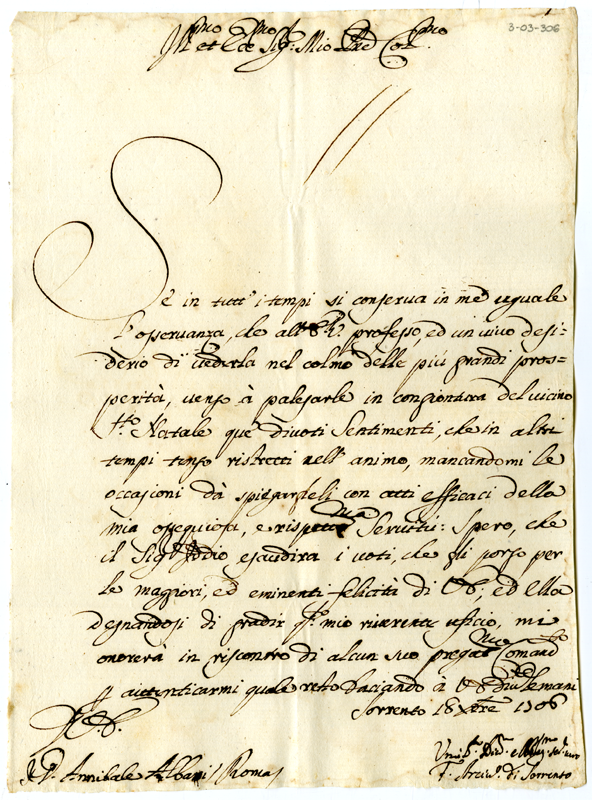 3-03-306
Ill.mo et Ecc.mo Sig.r Mio Pad. Col.mo
Se in tutt' i tempi si conserva in me uguale
l'osservanza, che all' professo, ed un vivo desi-
derio di vederla nel colmo delle più grandi pros-
perità, vengo à palesarle in congiontura del vicino
S.to Natale que' divoti sentimenti, che in altri
tempi tengo ristretti nell' animo, mancandomi le
occasioni dà spiegarcieli con atti efficaci della
mia ossequiosa, e Servitù: Spero, che
il Sig.r Iddio esaudirà i voti, che gli porgo per
le maggiori, ed eminenti felicità di V.E.; ed Ella
degnandosi di gradir q.to mio riverente uficio, mi
onorerà in riscontro di alcun suo pregiat.mo Comando
autenticarmi quale resto baciando à V.E. div.te le mani
Sorrento 18 Xbre 1706
D. Annibale Albani / Roma /
F. Arciv.o di Sorrento